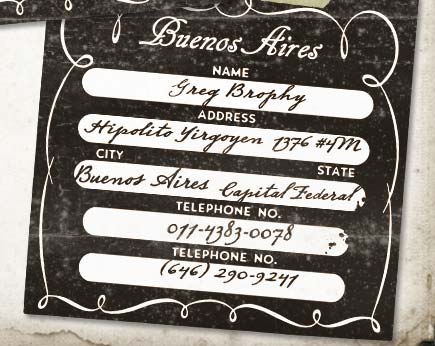 Buenos Aires
NAME
Greg Brophy
ADDRESS
Hipolito Yirgoyen 1376 #4M
CITY STATE
Buenos Aires Capital Federal
TELEPHONE NO.
011-4383-0078
TELEPHONE NO.
(646) 290-9241